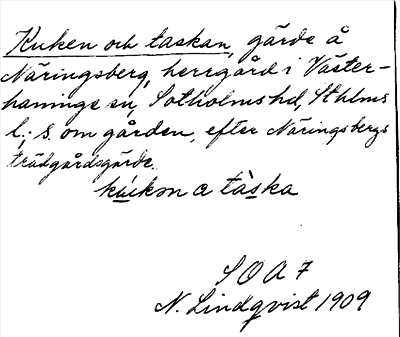 Kuken och taskan, gärde å
Näringsberg, herrgård i Väster-
haninge sn, Sotholms hd, Sthlms
l.; s. om gården, efter Näringsbergs
trädgårdsgärde.
kúkən ɑ tàska
S O A 7
N. Lindqvist 1909